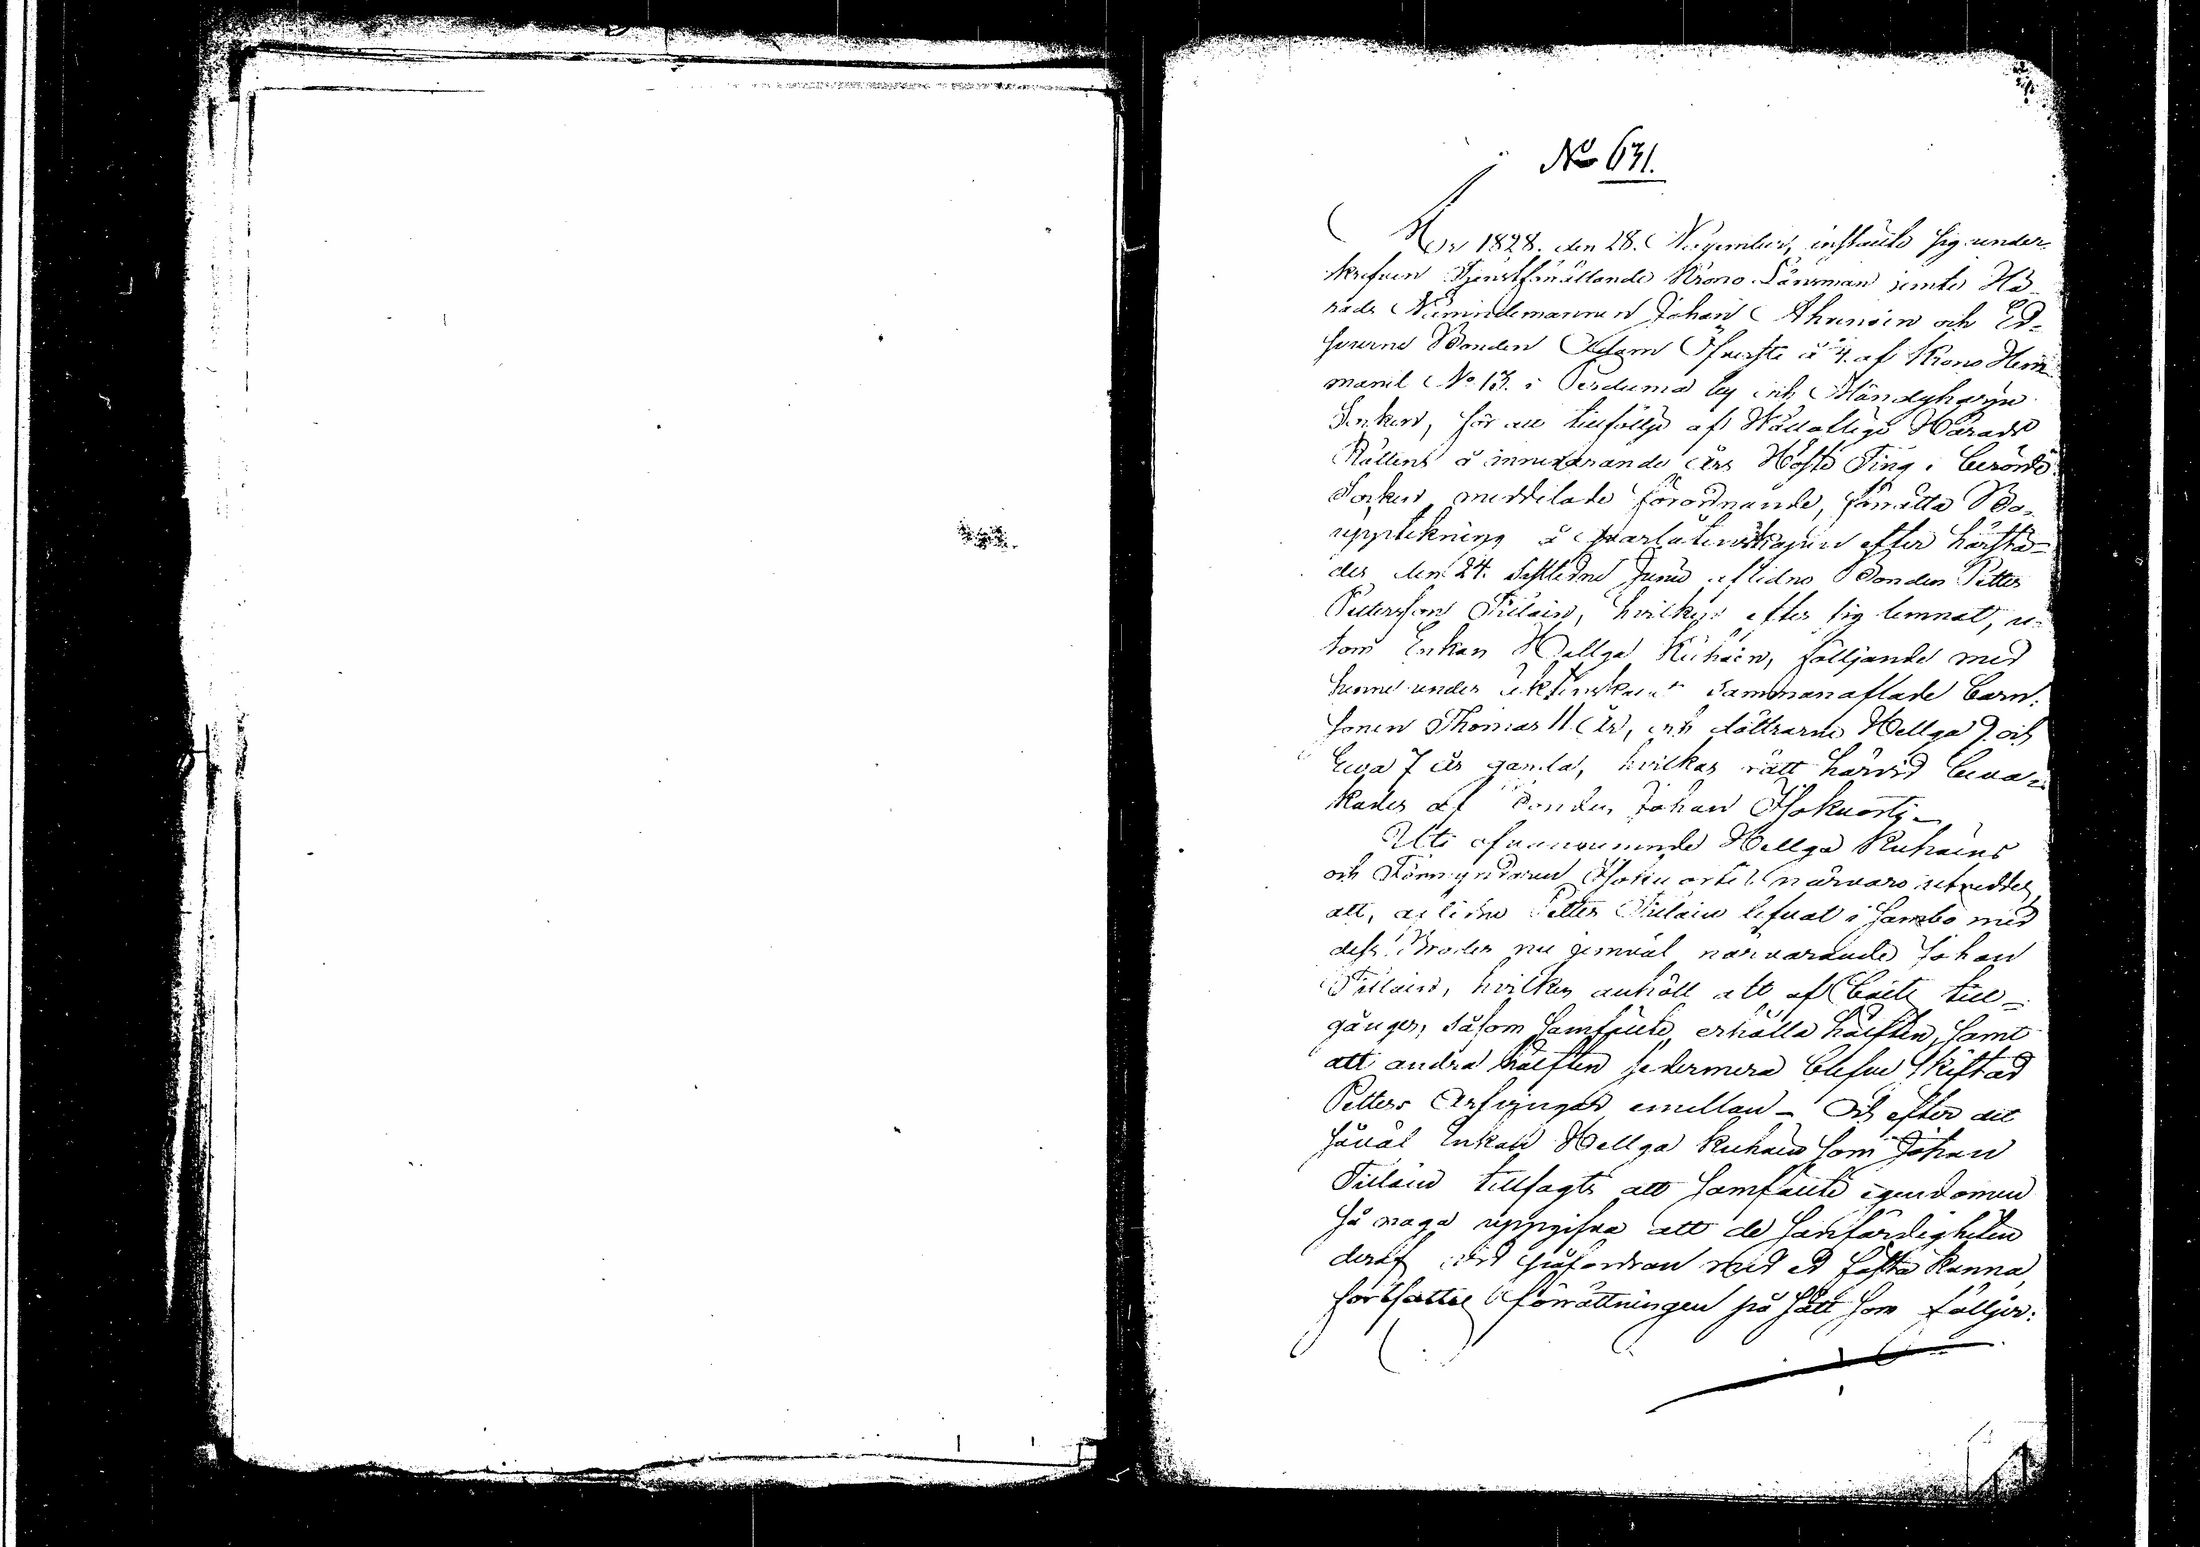 No 631.
År 1828. den 28. November, instälte sig under-
skrefven Tjenstförrättande Krono Länsman jemte Hä-
rads Nämndemannen Johan Ahvensin och Ed-
svurne Bonden Adam à 4. af Krono Hem-
manet No 13. i by och Mändyharju
Socken, för att tillföllje af Wällofliga Härads
Rättens å innevarande års Höste Ting i berörde
Socken meddelade förordnande, förrätta Bo-
upptekning å qvarlåtenskapen efter härstä-
des den 24. sistledne Junii aflidne Bonden Petter
Pettersson Tiilain, hvilken efter sig lemnat, u-
tom Enkan Hellga Kuhain, följjande med
henne under äktenskapet sammanaflade barn:
sonen Thomas 11 år, och döttrarne Hellga 9 och
Ewa 7 år gamla, hvilkas rätt härvid beva-
kades af Bonden Johan
Uti ofvannämnde Hellga Kuhains
och Förmyndaren närvaro utreddes,
att, aflidne Petter Tiilain lefvat i sambo med
dess Broder nu jemväl närvarande Johan
Tiilain, hvilken anhöll att af Boets till-
gångar, såsom samfällte, erhålla hälften, samt
att andra hälften sedermera blefve skiftad
Petters Arfvingar emellan - Och efter det
såväl Enkan Hellga Kuhain som Johan
Tiilain tillsagts att samfällte egendomen
så noga uppgifva att de sanfärdigheten
deraf vid påfordran med ed fästa kunna,
fortsattes förrättningen på sätt som följjer: